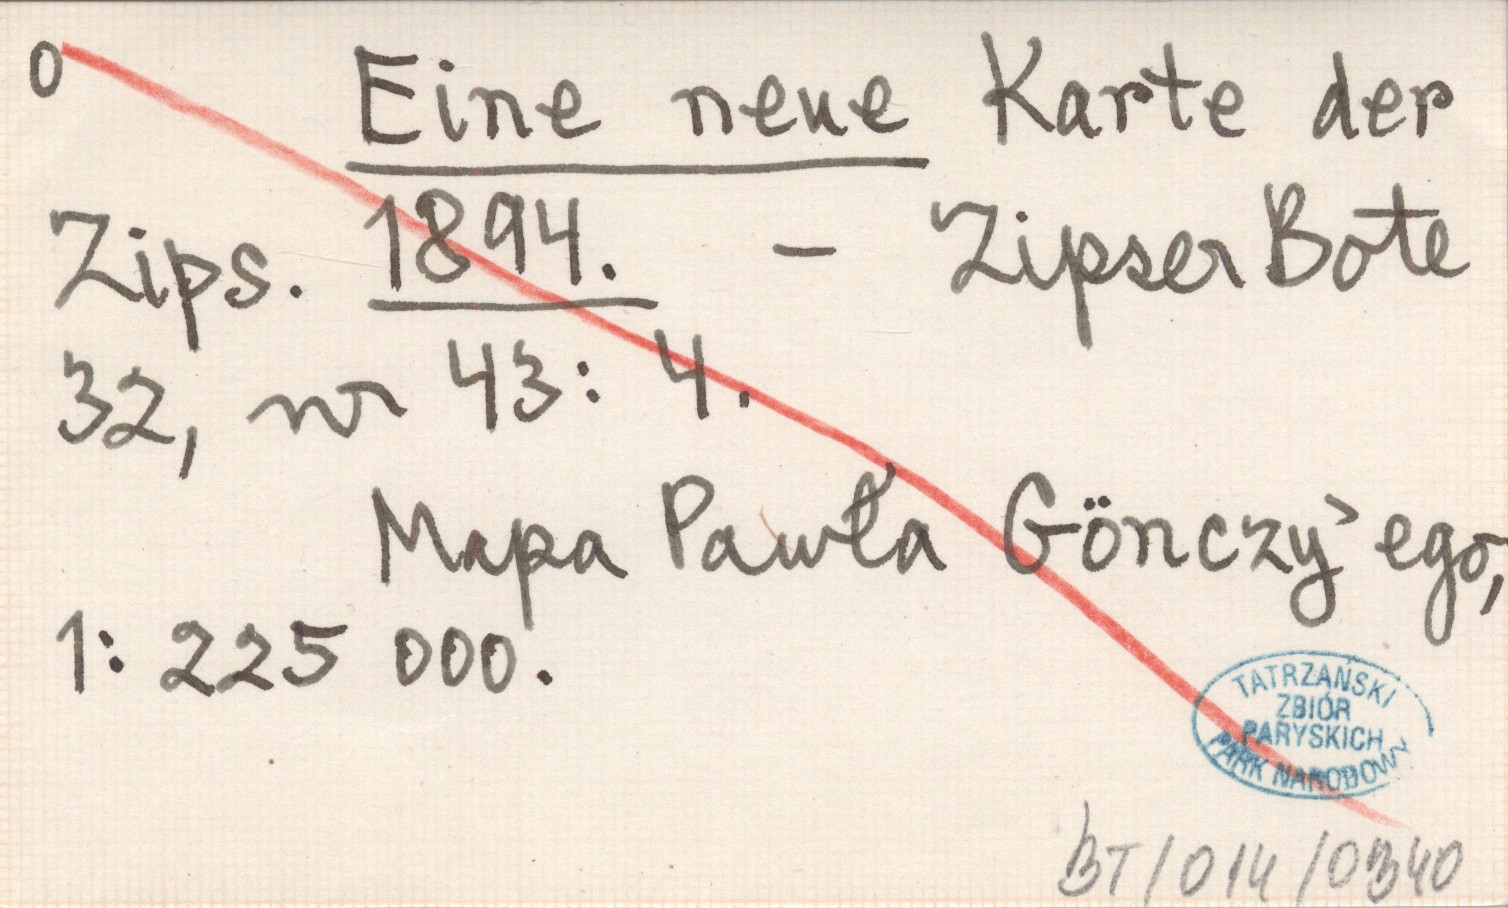 0 Eine neue Karte der
Zips. 1894. – Zipser Bote
32, nr 43: 4.
Mapa Pawła Gönczy'ego,
1: 225 000.
TATRZAŃSKI
ZBIÓR
PARYSKICH
PARK NARODOWY
BT/014/0340